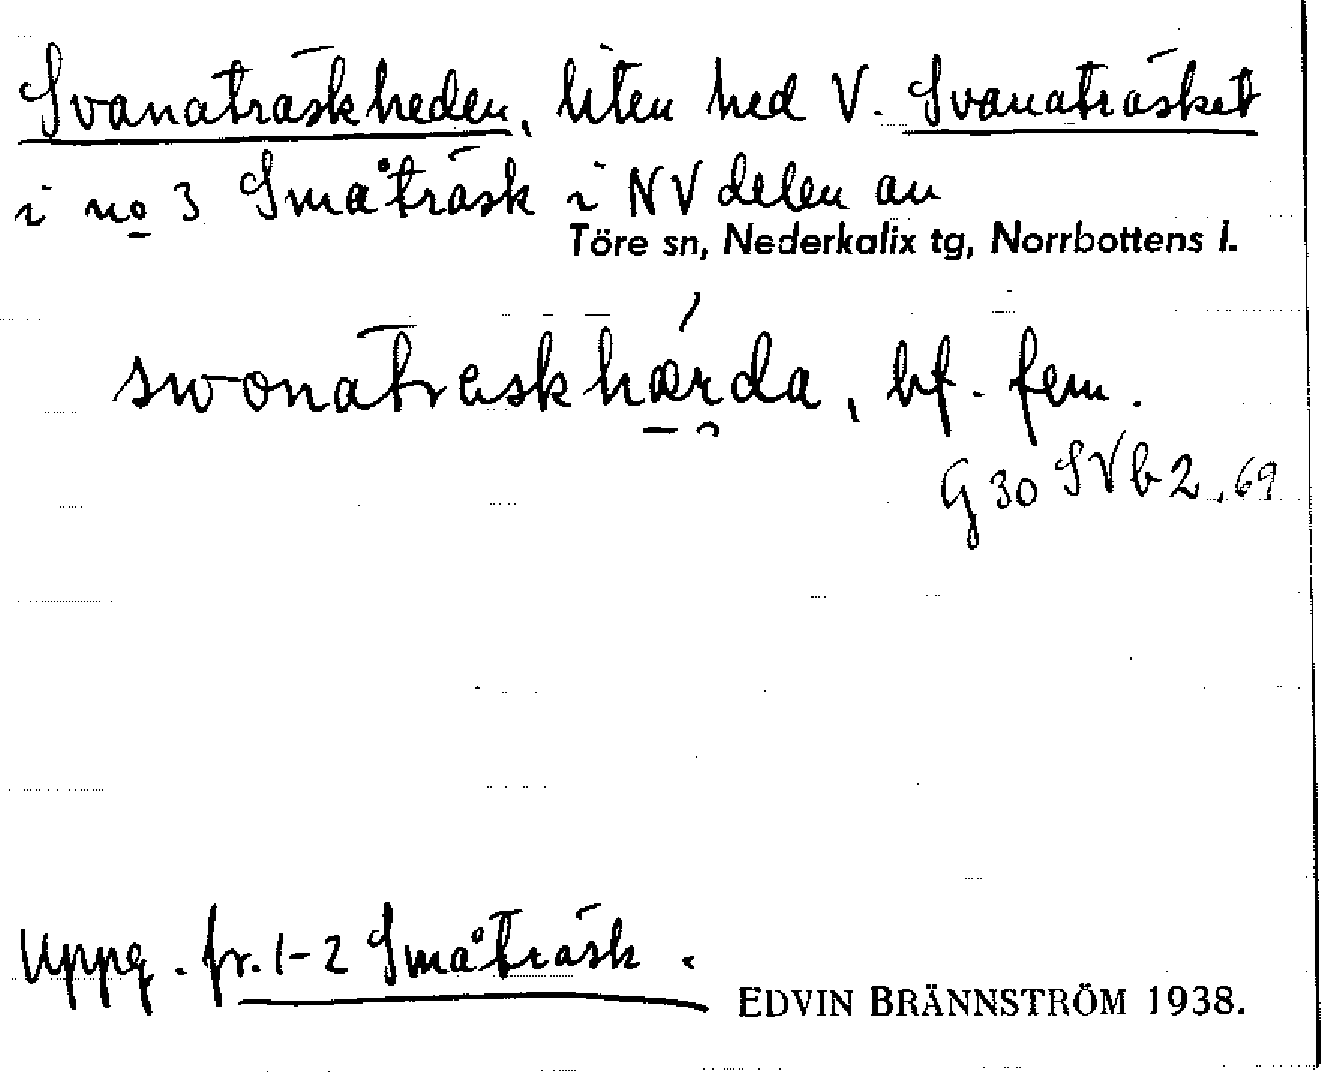 Svanaträskheden, liten hed V. Svanaträsket
i no 3 Småträsk i NV delen av
Töre sn, Nederkalix tg, Norrbottens l.
swonatræskhærda, bf. fem.
G 30 SVb 2, 69
Uppg. fr. 1-2 Småträsk.
EDVIN BRÄNNSTRÖM 1938.